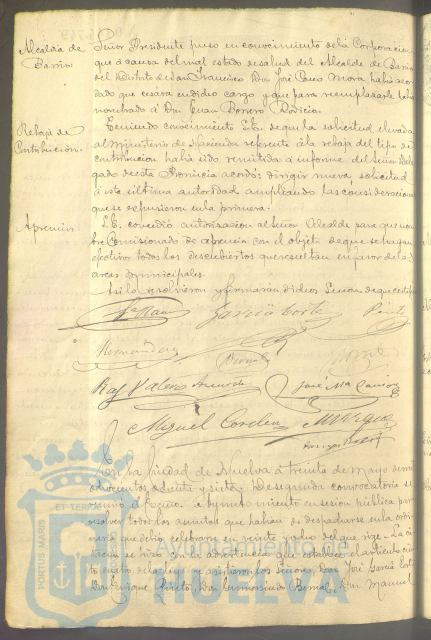 Alcaldia de
Barrio
Señor Presidente puso en conocimiento de la Corporacion
que á causa del mal estado de salud del Alcalde de Barrio
del Distrito de San Francisco Don José Cano Mora habia acor
dado que cesara en dicho cargo y que para reemplazarle habia
nombrado á Don Juan Borrero Rodicio.
Rebaja de
Contribucion.
Teniendo conocimiento S.E. de que la solicitud elevada
al Ministerio de Hacienda referente á la rebaja del tipo de
contribucion habia sido remitida á informe del Señor Dele
gado de esta Provincia acordó: dirigir nueva solicitud
á esta última autoridad ampliando las consideraciones
que se expusieron en la primera.
Apremios
S.E. concedió autorizacion al Señor Alcalde para que nom
bre Comisionado de apremio con el objeto de que se hagan
efectivos todos los descubiertos que resultan en favor de las
arcas municipales.
Asi lo resolvieron y firmarán dichos Señores de que certifico
Garcia Cortes
Pinto
Hernandez
Bernal
Raf Valera
José Ma
Miguel Cordero
En la Ciudad de Huelva á treinta de Mayo de mil
ochocientos ochenta y siete. De segunda convocatoria se
reunió el Excmo. Ayuntamiento en sesion pública para
resolver todos los asuntos que habian de despacharse en la ordi
naria que debió celebrarse en veinte y ocho del que rige. La ci
tacion se hizo con la advertencia que establece el articulo cien
to cuatro de la ley y asistieron los Señores Don José Garcia Cortes
Don Enrique Pinto, Don Gumersindo Bernal, Don Manuel
PORTUS MARIS
ET TERRAE
Ayuntamiento de
HUELVA